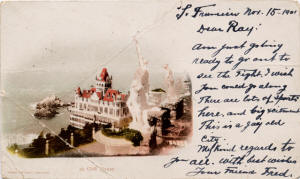 S. Francisco Nov. 15-1901
Dear Ray:
Am just going
ready to go out to
see the Fight. I wish
you could go along
There are lots of Sports
here, big excitement
This is a gay old
City.
My kind regards to
you all. with best wishes
Your Friend Fred.
Cliff House